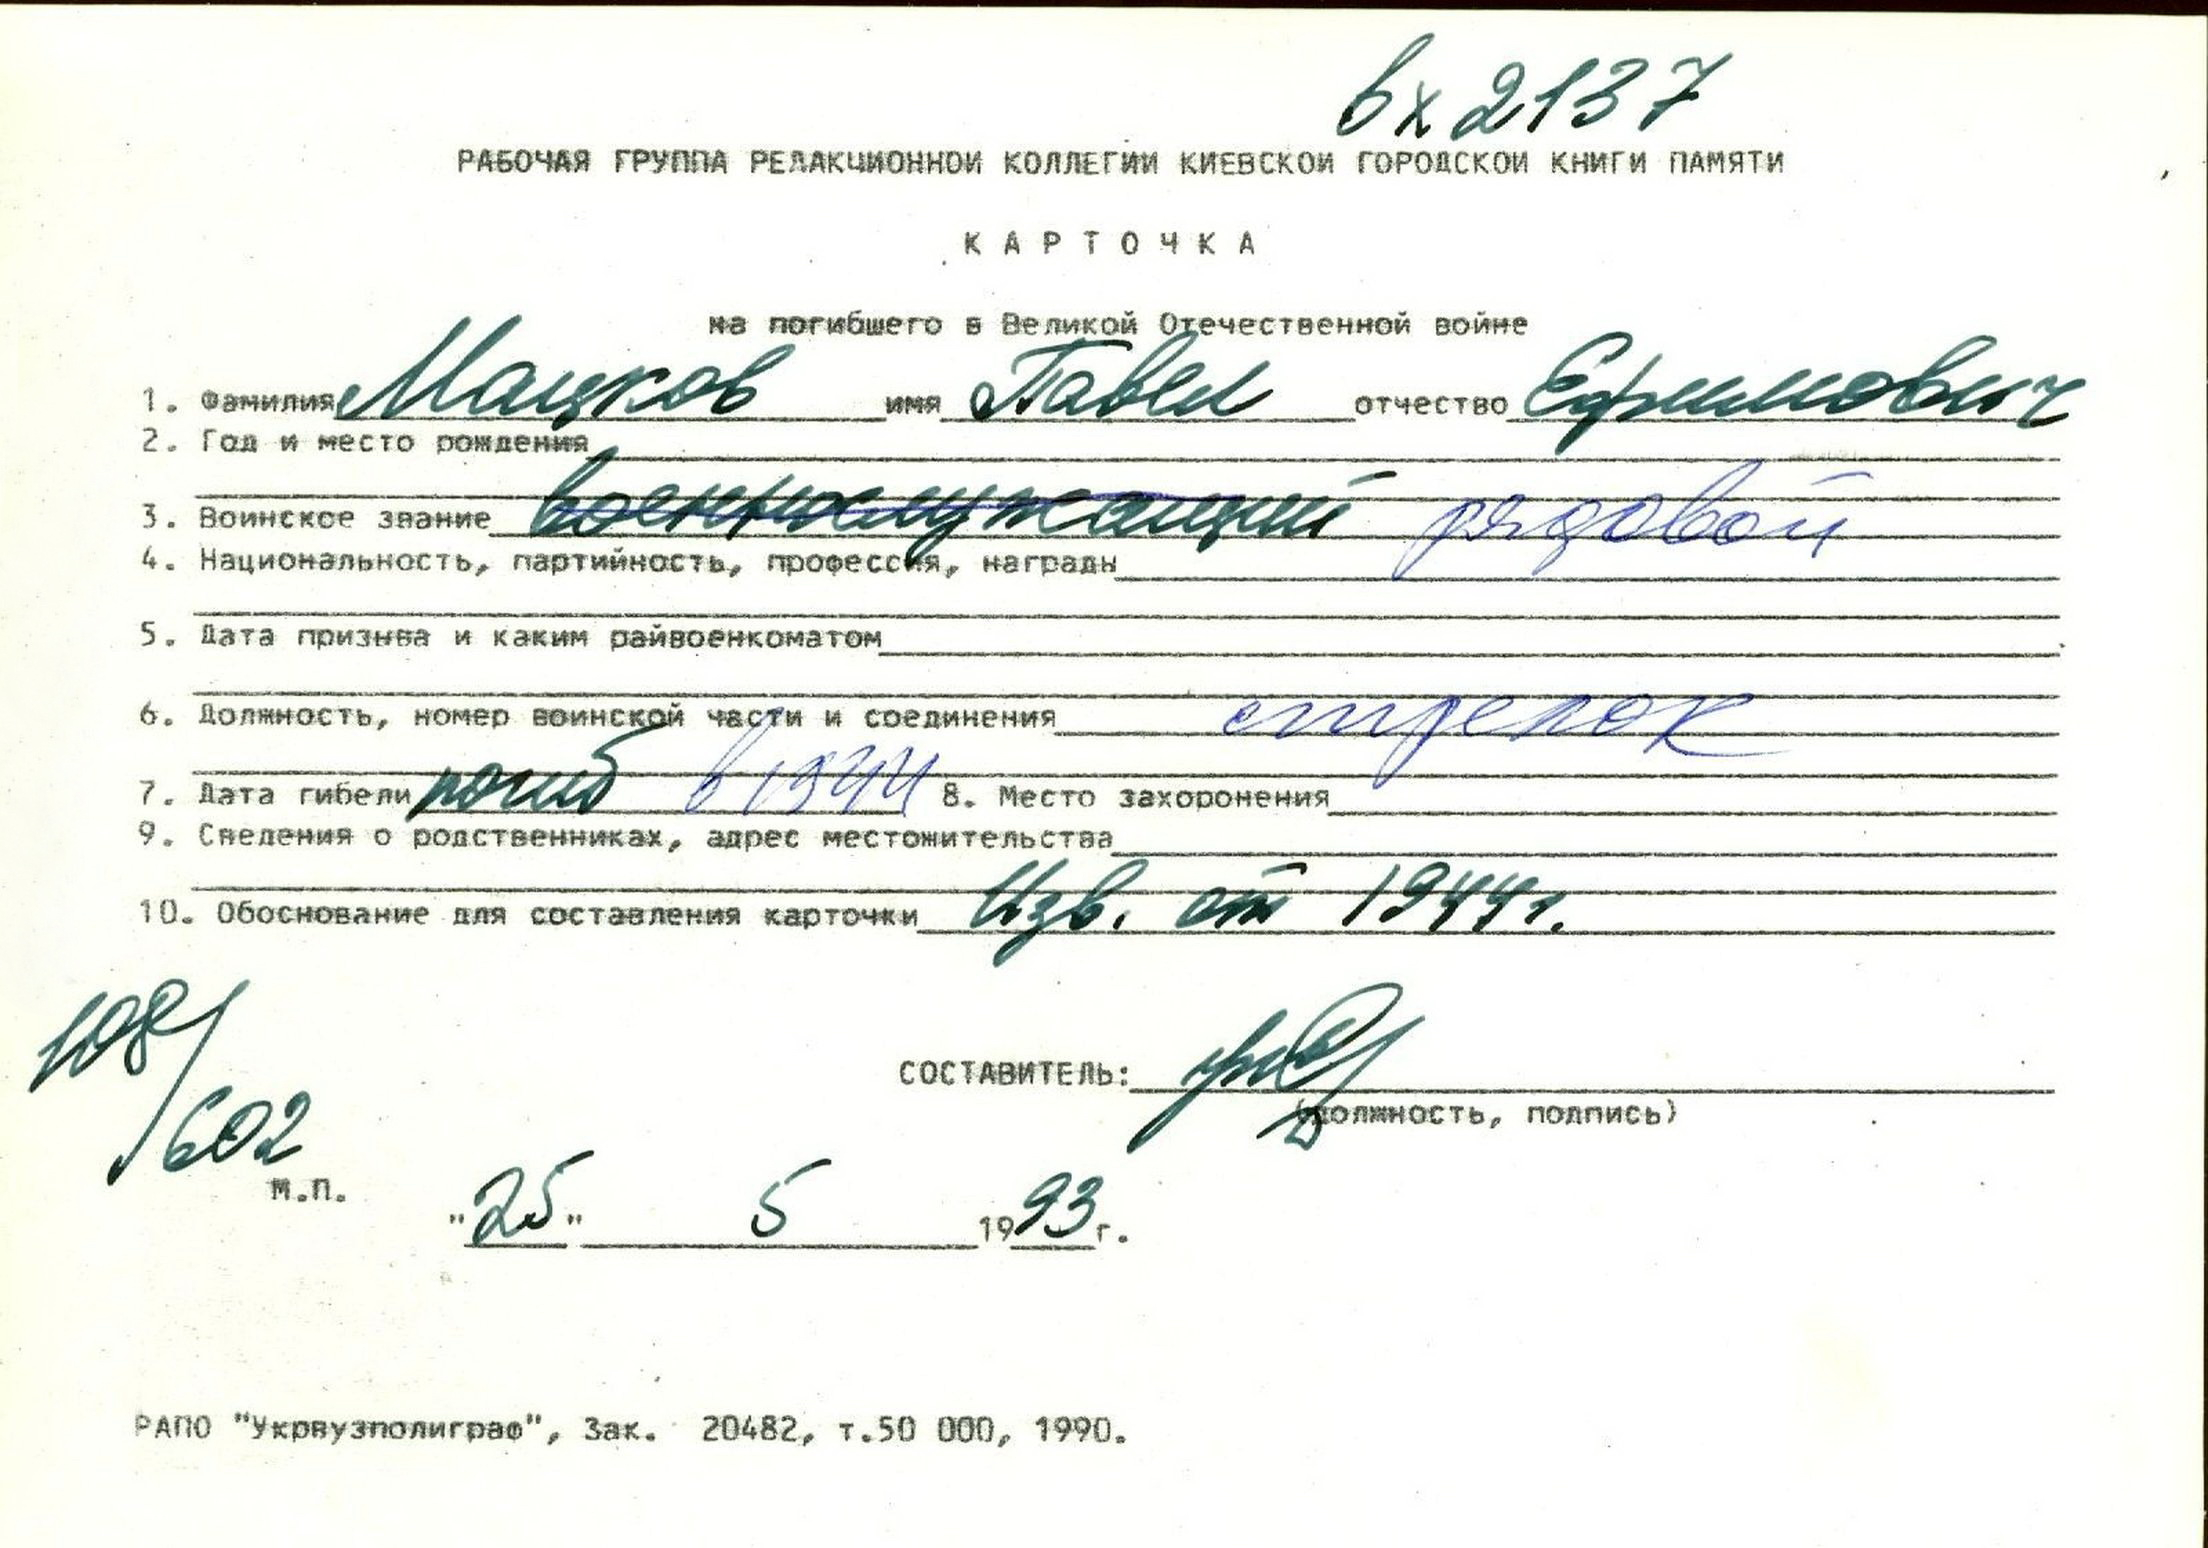 вх 2137
РАБОЧАЯ ГРУППА РЕДАКЦИОННОЙ КОЛЛЕГИИ КИЕВСКОЙ ГОРОДСКОЙ КНИГИ ПАМЯТИ
КАРТОЧКА
на погибшего в Великой Отечественной войне
1. Фамилия Мацков имя Павел отчество Ефимович
2. Год и место рождения
3. Воинское звание военнослужащий рядовой
4. Национальность, партийность, профессия, награды
5. Дата призыва и каким райвоенкоматом
6. Должность, номер воинской части и соединения стрелок
7. Дата гибели погиб в 1944 8. Место захоронения
9. Сведения о родственниках, адрес местожительства
10. Обоснование для составления карточки Изв. от 1944г.
108/602
СОСТАВИТЕЛЬ:
(должность, подпись)
м.п.
"25" 5 1993г.
РАПО "Укрвузполиграф", Зак. 20482, т.50 000, 1990.